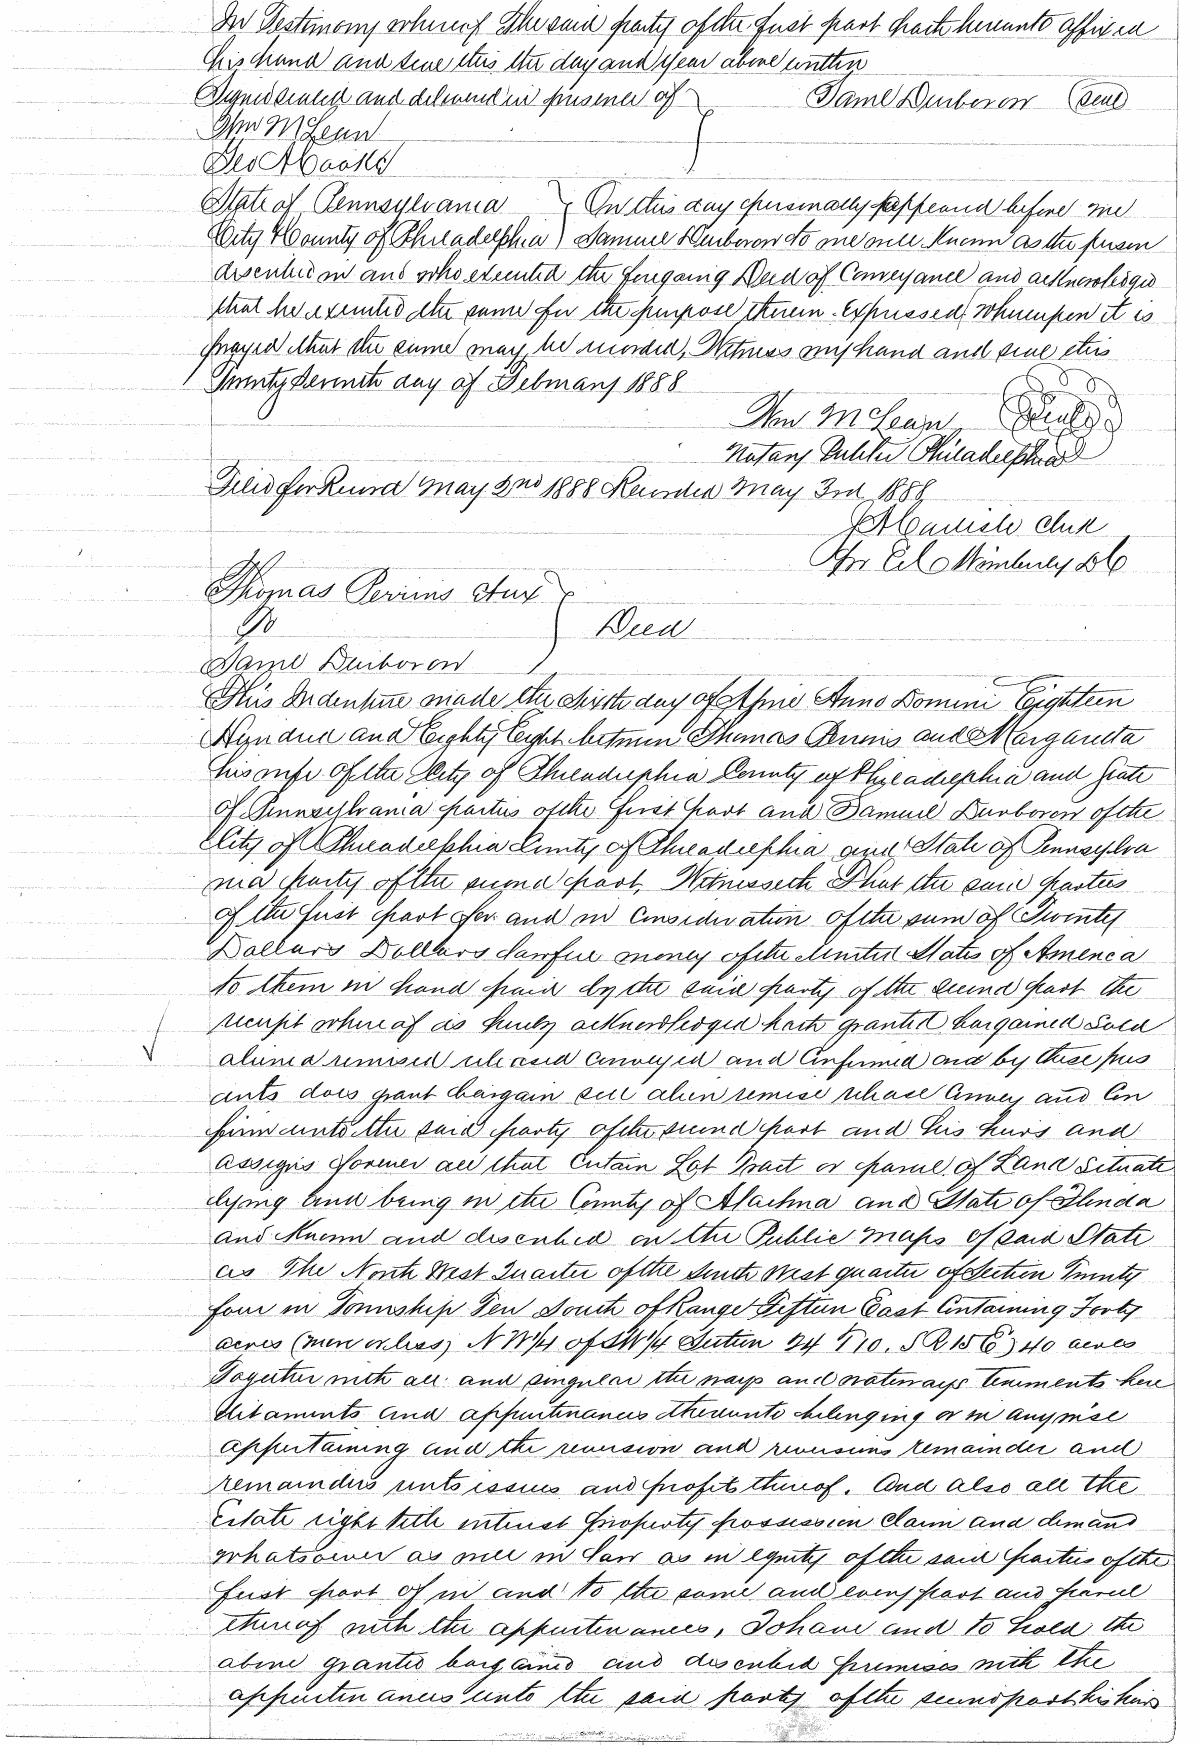 In Testimony whereof The said party of the first part hath hereunto affixed
his hand and seal this the day and year above written
Signed sealed and delivered in presence of Saml Durborow (seal)
Wm McLean
Geo
State of Pennsylvania } On this day personally appeared before me
City & County of Philadelphia } Samuel Durborow to me well Known as the person
described in and who executed the foregoing Deed of Conveyance and acknowledged
that he executed the same for the purpose therein Expressed, Whereupon it is
prayed that the same may be recorded, Witness my hand and seal this
Twenty Seventh day of February 1888
Wm McLean (Seal)
Notary Public Philadelphia
Filed for Record May 2nd 1888 Recorded May 3rd 1888
Clerk
Per DC
Thomas Perrins & ux }
To } Deed
Saml Durborow }
This Indenture made the Sixth day of April Anno Domini Eighteen
Hundred and Eighty Eight between Thomas Perrins and Margaretta
his wife of the City of Philadelphia County of Philadelphia and State
of Pennsylvania parties of the first part and Samuel Durborow of the
City of Philadelphia County of Philadelphia and State of Pennsylva
nia party of the second part, Witnesseth That the said parties
of the first part for and in Consideration of the sum of Twenty
Dollars Dollars Lawful money of the United States of America
to them in hand paid by the said party of the second part the
receipt whereof is hereby acknowledged hath granted bargained Sold
aliened remised released Conveyed and Confirmed and by these pres
ents does grant bargain sell alien remise release Convey and Con
firm unto the said party of the second part and his heirs and
assigns forever all that Certain Lot Tract or parcel of Land Situate
lying and being in the County of Alachua and State of Florida
and Known and described on the Public maps of said State
as The North West Quarter of the South West quarter of Section Twenty
four in Township Ten South of Range Fifteen East Containing Forty
acres (more or less) N W 1/4 of SW 1/4 Section 24 T 10. S R 15 E) 40 acres
Together with all and singular the ways and waterways tenements here
ditaments and appurtenances thereunto belonging or in anywise
appertaining and the reversion and reversions remainder and
remainders rents issues and profits thereof. And also all the
Estate right title interest property possession Claim and demand
whatsoever as well in Law as in equity of the said parties of the
first part of in and to the same and every part and parcel
thereof with the appurtenances, To have and to hold the
above granted bargained and described premises with the
appurtenances unto the said party of the second part his heirs